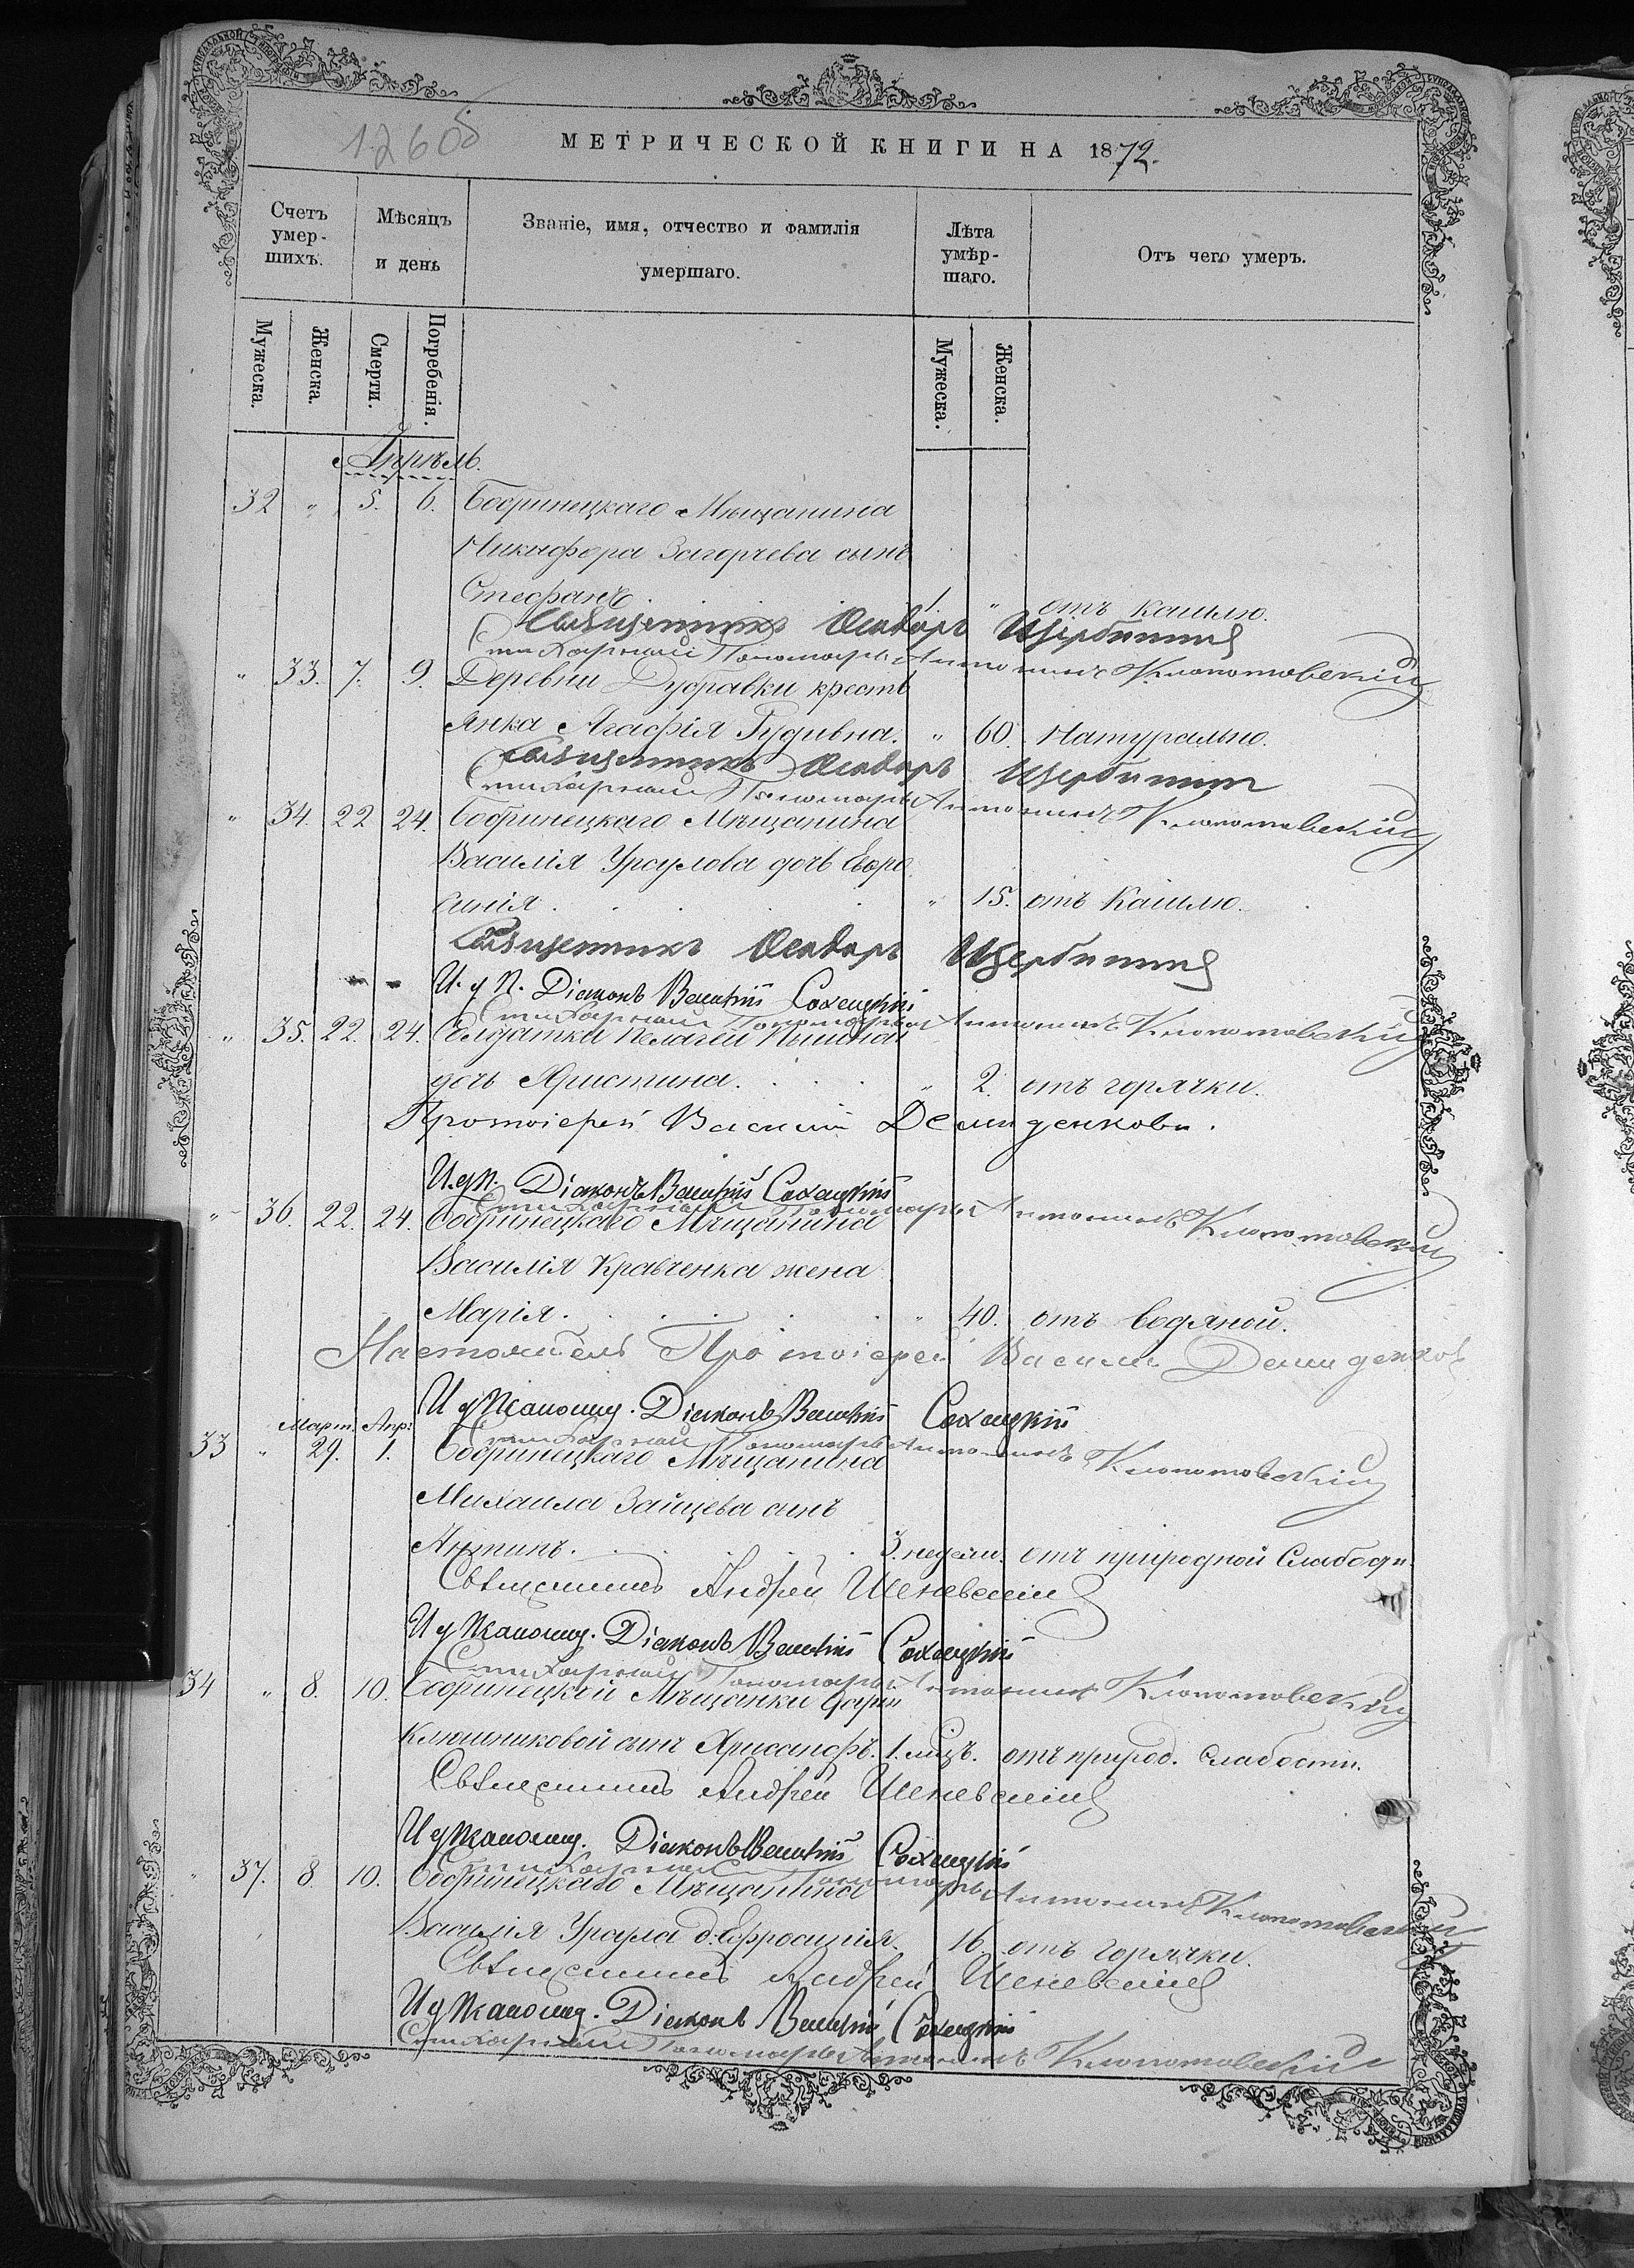 12608
МЕТРИЧЕСКОЙ КНИГИ НА 1872.
Счетъ умер-шихъ.
Мѣсяцъ и день
Званіе, имя, отчество и фамилія умершаго.
Лѣта умѣр-шаго.
Отъ чего умеръ.
Мужеска. Женска. Смерти. Погребенія. Мужеска. Женска.
Апрѣль.
32 " 5. 6. Бобринецкаго Мѣщанина
Никифора Загорчева сынъ
Стефанъ 1. " отъ кашлю.
Священникъ Щербинин
Стихарный Пономарь Антонинъ Клопотовскій
" 33. 7. 9. Деревни Дубравки крестъ
янка Агафія Гудивна. " 60. Натурально.
Священникъ Щербинин
Стихарный Пономарь Антонинъ Клопотовскій
" 34. 22 24. Бобринецкаго Мѣщанина
Василія Урсулова дочь Евфро
синія " 15. отъ Кашлю.
Священникъ Щербинин
И. д П. Діаконъ Сохацкій
Стихарный Пономарь Антонинъ Клопотовскій
" 35. 22. 24. Солдатки Пелагеи
дочь Христина. " 2. отъ горячки.
Протоіерей Василій Демиденковъ.
И.дП. Діаконъ Сохацкій
Стихарный Пономарь Антонинъ Клопотовскій
" 36. 22. 24. Бобринецкаго Мѣщанина
Василія Кравченка жена
Марія. " 40. отъ водяной.
Настоятель Протоіерей Василій Демиденковъ
И д Псаломщ. Діаконъ Сохацкій
Март. Апр.
Стихарный Пономарь Антонинъ Клопотовскій
33 " 29. 1. Бобринецкаго Мѣщанина
Михаила Зайцева сынъ
Антипъ. 3. недѣли. отъ природной Слабости
Священникъ Андрей
И д Псаломщ. Діаконъ Сохацкій
Стихарный Пономарь Антонинъ Клопотовскій
34 " 8. 10. Бобринецкой Мѣщанки Дарiи
Ключниковой сынъ Хрисанфъ. 1. мѣц. отъ природ. слабости.
Священникъ Андрей
И д Псаломщ. Діаконъ Сохацкій
Стихарный Пономарь Антонинъ Клопотовскій
" 37. 8 10. Бобринецкаго Мѣщанина
Василія Урсула д. Ефросинія. 16 отъ горячки.
Священникъ Андрей
И д Псаломщ. Діаконъ Сохацкій
Стихарный Пономарь Антонинъ Клопотовскій